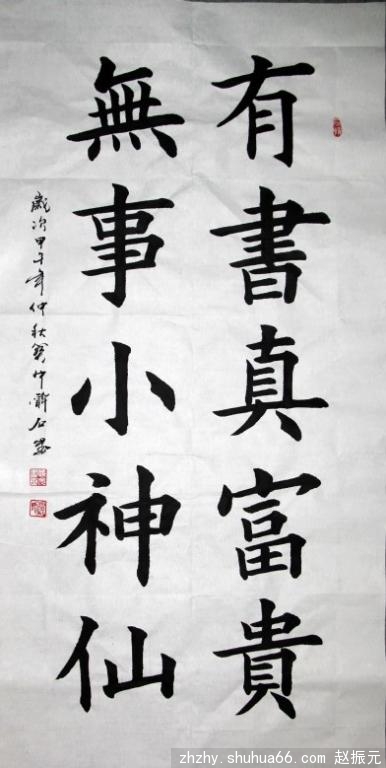 有書真富貴
無事小神仙
歲次甲午年仲秋
zhzhy.shuhua66.com 赵振元